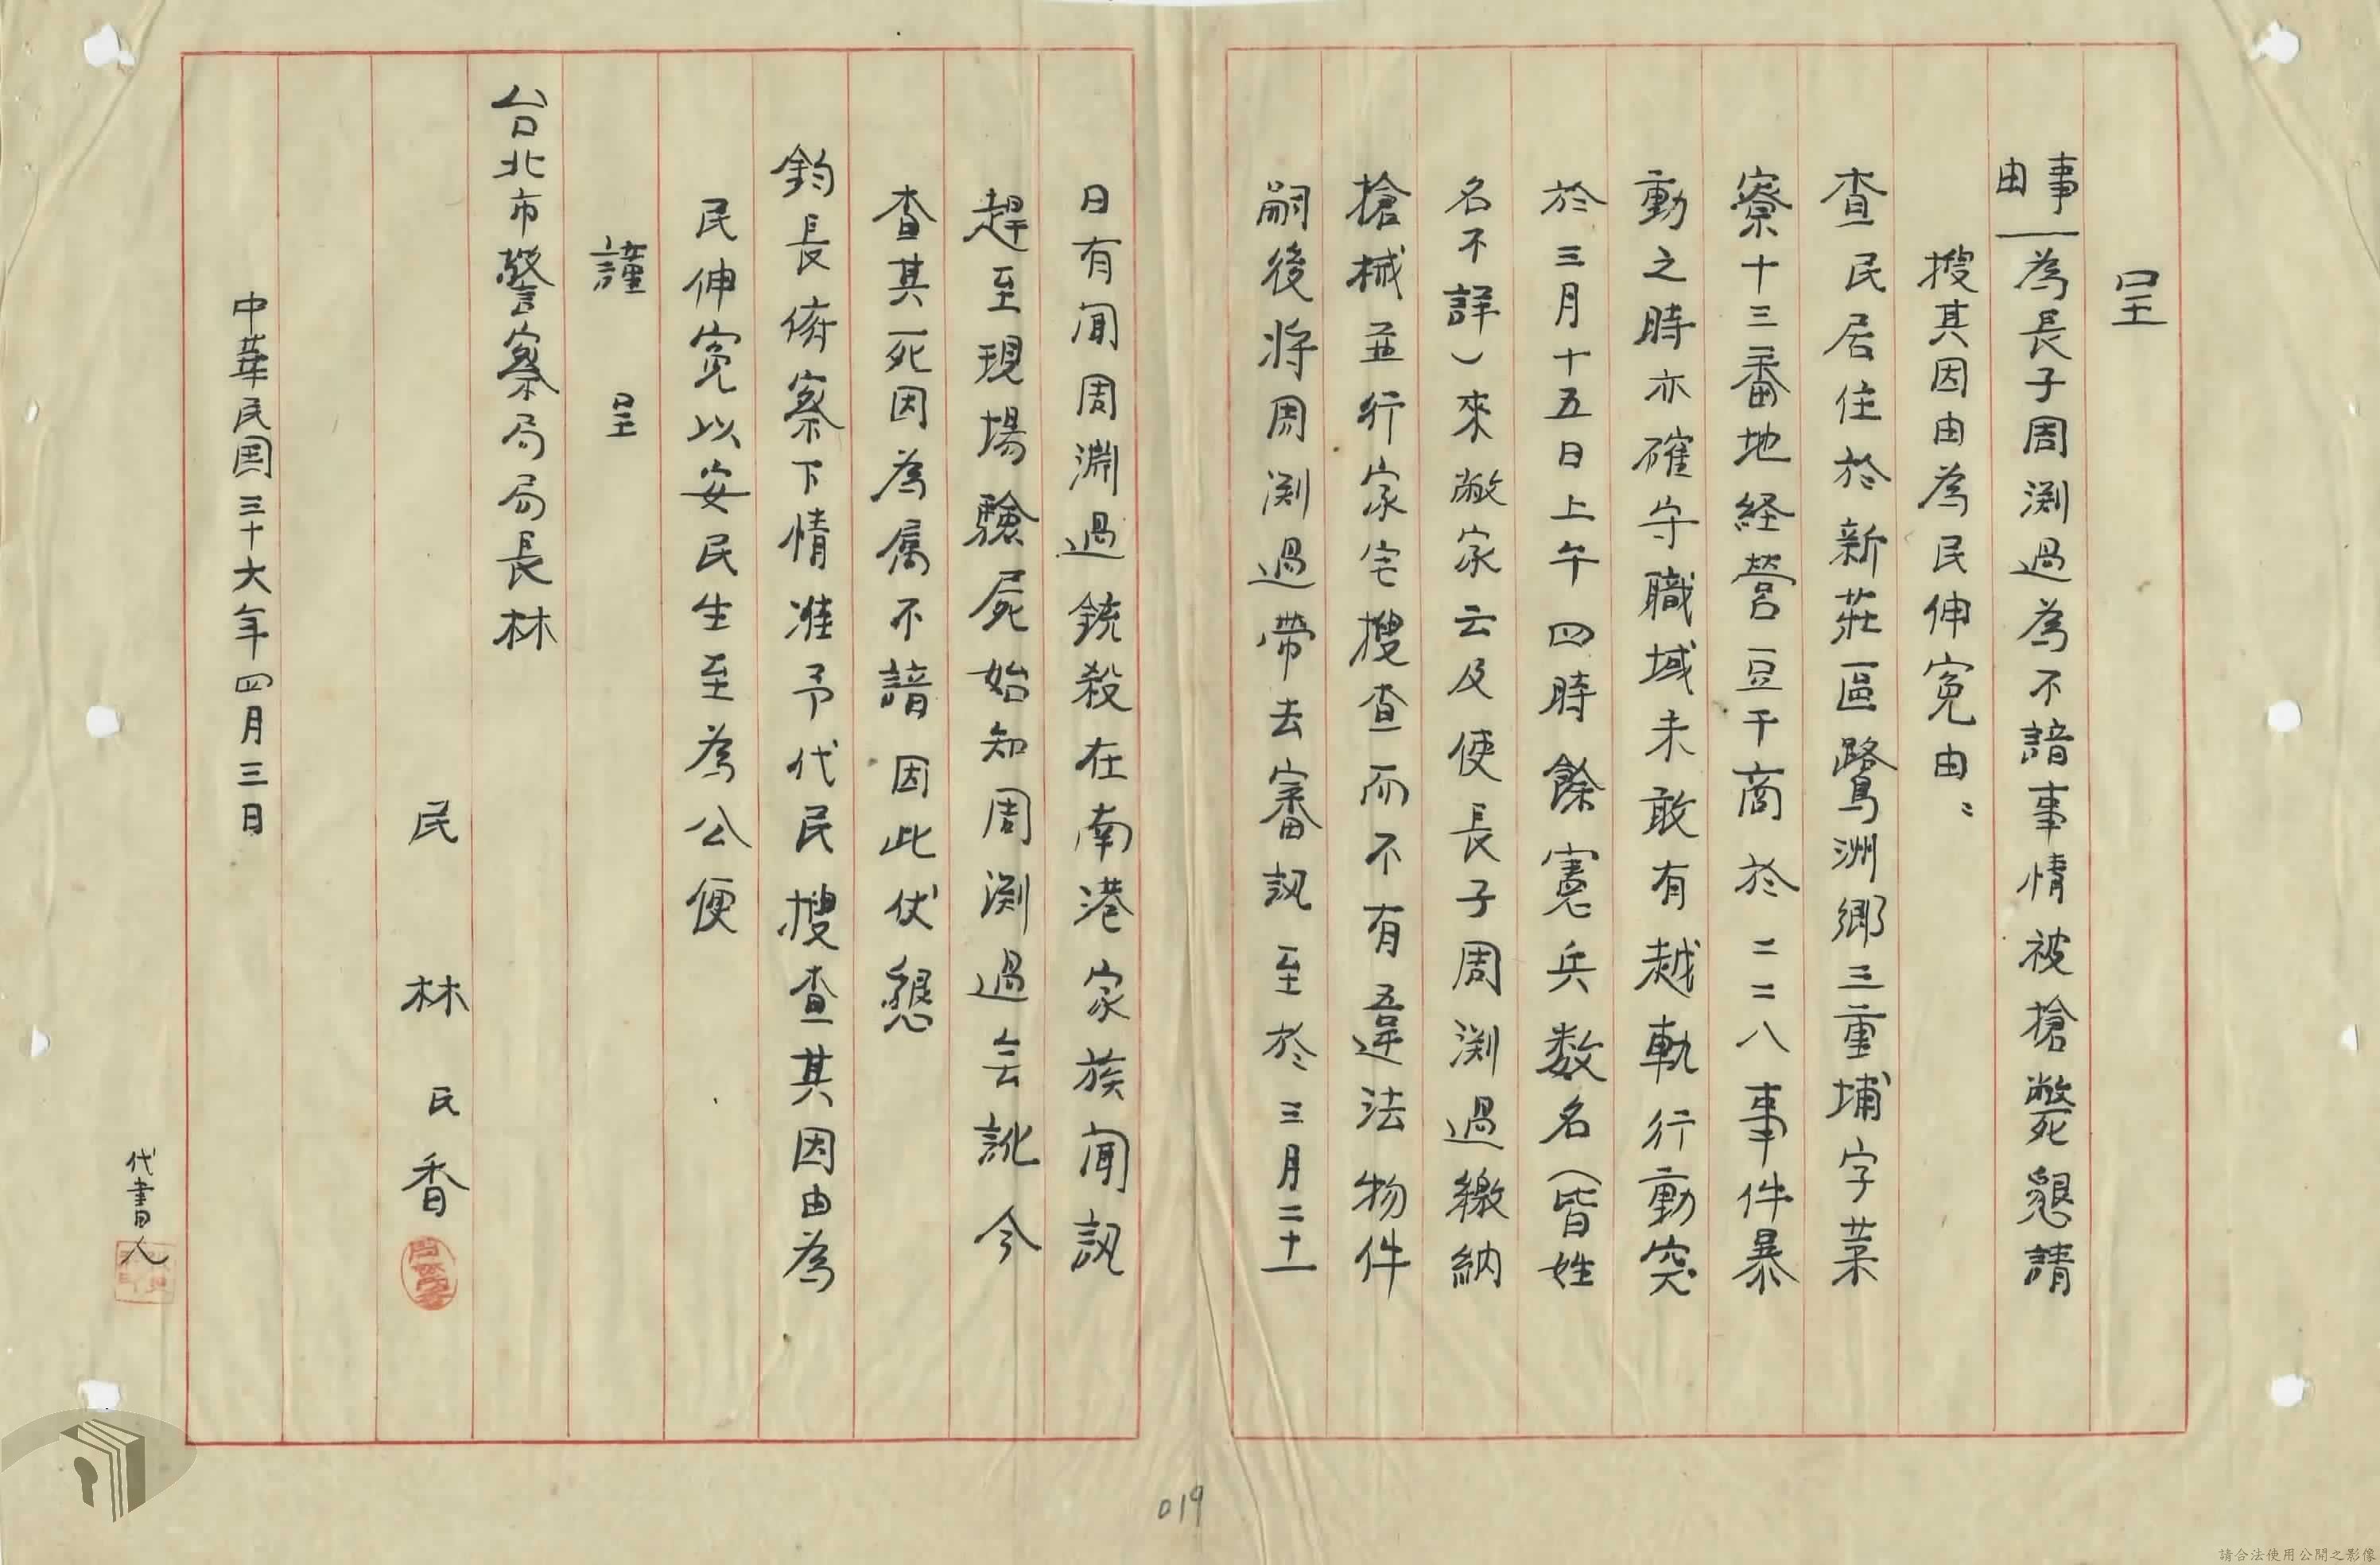 呈
事由 為長子周渕過為不諳事情被搶斃死懇請
搜其因由為民伸寃由：
查民居住於新莊區鷺洲鄉三重埔字菜
寮十三番地経營豆干商於二二八事件暴
動之時亦確守職域未敢有越軌行動突
於三月十五日上午四時餘憲兵数名（皆姓
名不詳）來敝家云及使長子周渕過繳納
搶械並行家宅搜查而不有違法物件
嗣後将周渕過帶去審訊至於三月二十一
日有聞周淵過銃殺在南港家族聞訊
趕至現場驗屍始知周渕過会訛今
查其死因為属不諳因此伏懇
鈞長俯察下情准予代民搜查其因由為
民伸寃以安民生至為公便
謹呈
台北市警察局局長林
民 林民香
中華民国三十六年四月三日
代書人
019
請合法使用公開之影像